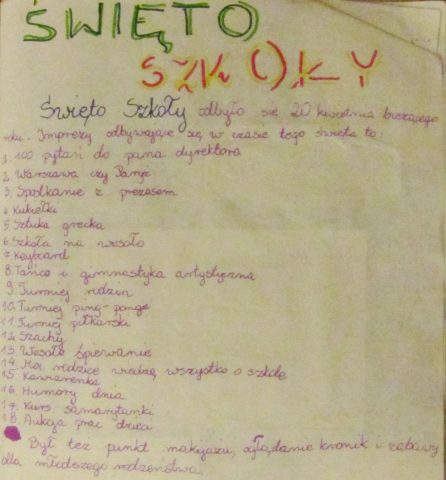 ŚWIĘTO
SZKOŁY
Święto Szkoły odbyło się 20 kwietnia bieżącego
roku. Imprezy odbywające się w czasie tego święta to:
1. 100 pytań do pana dyrektora
2. Warszawa czy Paryż
3. Spotkanie z prezesem
4. Kukiełki
5. Sztuka grecka
6. Szkoła na wesoło
7. Keyboard
8. Taniec i gimnastyka artystyczna
9. Turniej rodzin
10. Turniej ping-ponga
11. Turniej piłkarski
12. Szachy
13. Wesołe śpiewanie
14. Moi rodzice wiedzą wszystko o szkole
15. Kawiarenka
16. Humory dnia
17. Kurs samarytanki
18. Aukcja prac dzieci
Był też punkt makijażu, oglądanie kronik i zabawy
dla młodszego rodzeństwa.